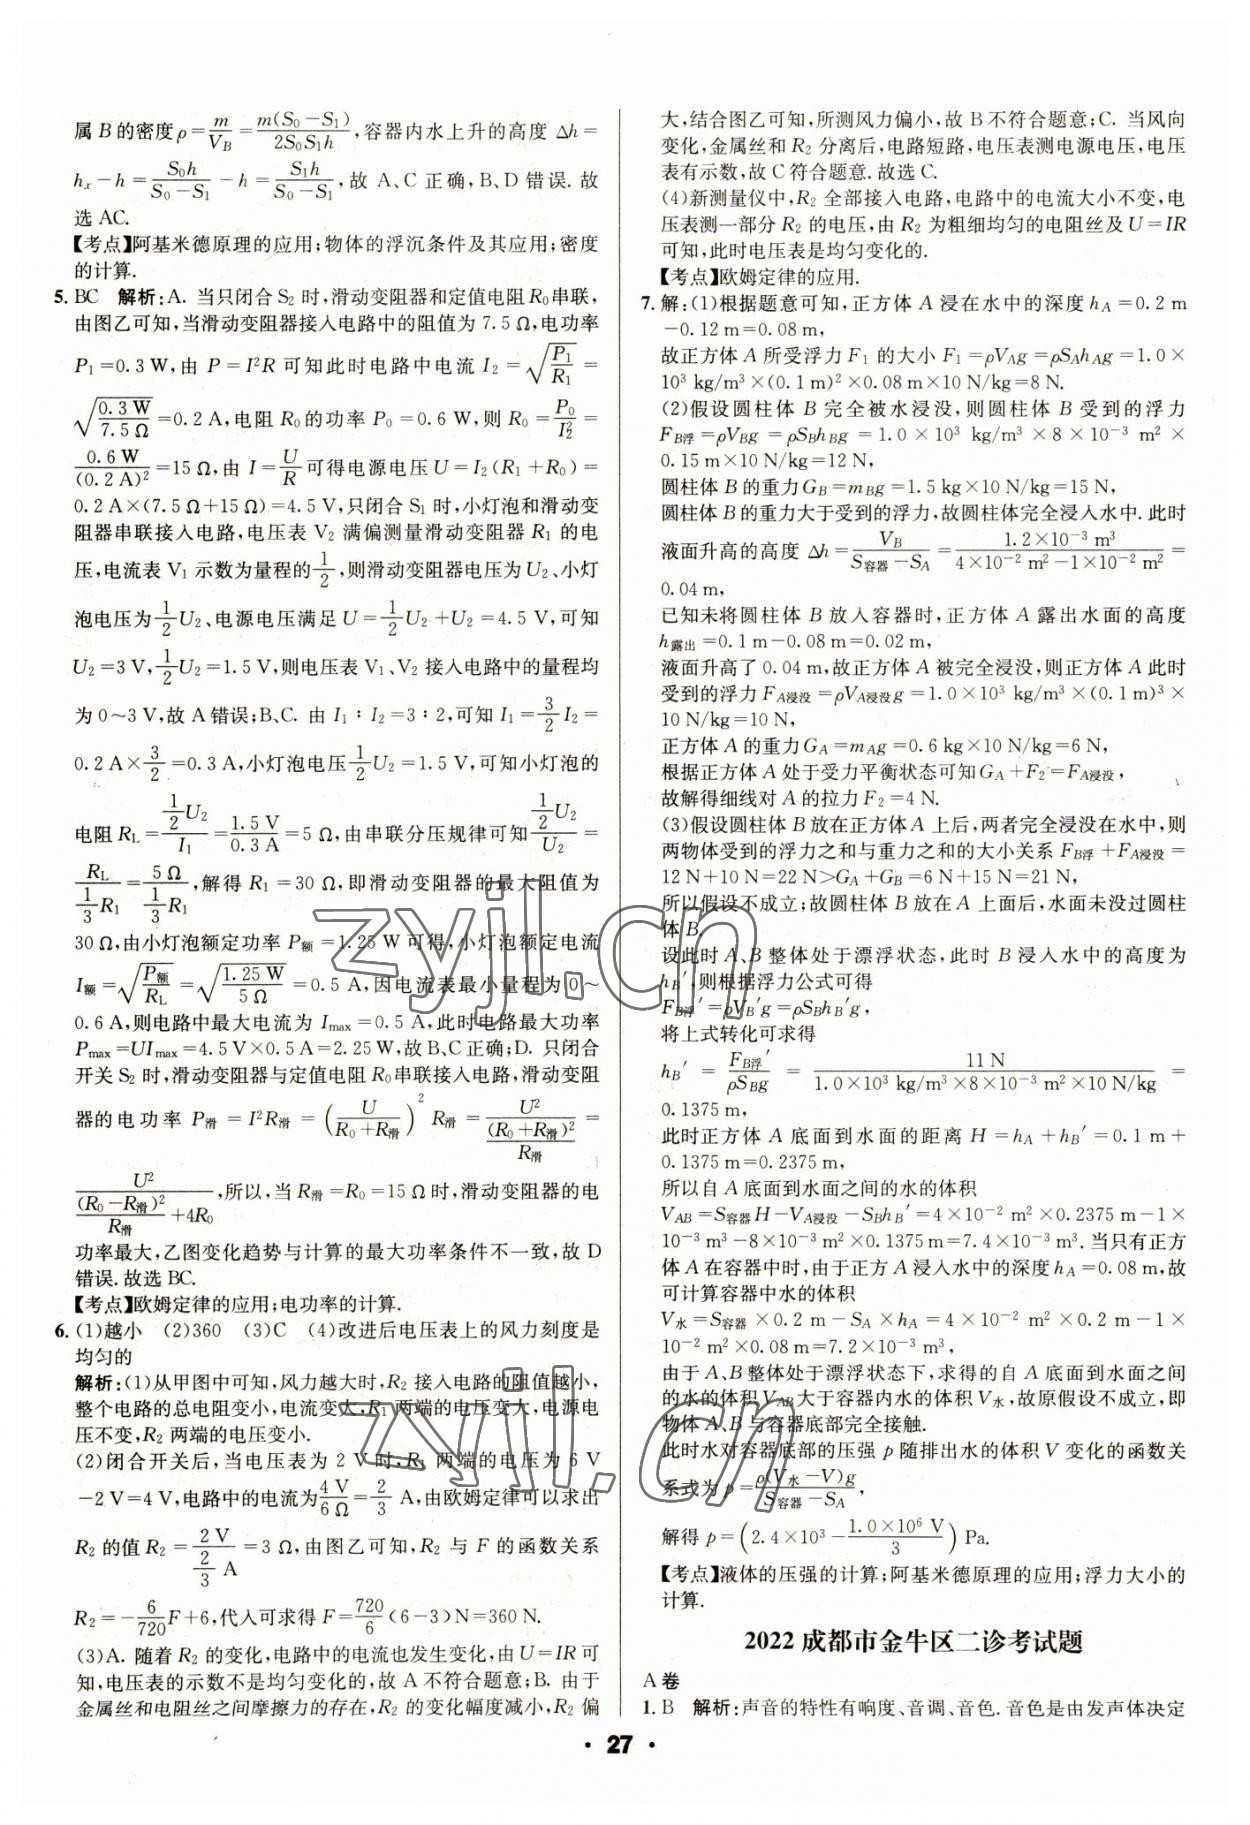 属 B 的密度 ρ=m/V_B=m(S₀−S₁)/2S₀S₁h,容器内水上升的高度 Δh=
hₓ−h=S₀h/(S₀−S₁)−h=S₁h/(S₀−S₁),故 A、C 正确,B、D 错误. 故
选 AC.
【考点】阿基米德原理的应用;物体的浮沉条件及其应用;密度
的计算.
5. BC 解析:A. 当只闭合 S₂ 时,滑动变阻器和定值电阻 R₀串联,
由图乙可知,当滑动变阻器接入电路中的阻值为 7.5 Ω,电功率
P₁=0.3 W,由 P=I²R 可知此时电路中电流 I₂=√(P₁/R₁)=
√(0.3 W/7.5 Ω)=0.2 A,电阻 R₀的功率 P₀=0.6 W,则 R₀=P₀/I₂²=
0.6 W/(0.2 A)²=15 Ω,由 I=U/R可得电源电压 U=I₂(R₁+R₀)=
0.2 A×(7.5 Ω+15 Ω)=4.5 V,只闭合 S₁ 时,小灯泡和滑动变
阻器串联接入电路,电压表 V₂ 满偏测量滑动变阻器 R₁ 的电
压,电流表 V₁ 示数为量程的1/2,则滑动变阻器电压为 U₂、小灯
泡电压为1/2U₂、电源电压满足 U=1/2U₂+U₂=4.5 V,可知
U₂=3 V,1/2U₂=1.5 V,则电压表 V₁、V₂ 接入电路中的量程均
为 0~3 V,故 A 错误;B、C. 由 I₁∶I₂=3∶2,可知 I₁=3/2I₂=
0.2 A×3/2=0.3 A,小灯泡电压1/2U₂=1.5 V,可知小灯泡的
电阻 R_L=(1/2U₂)/I₁=1.5 V/0.3 A=5 Ω,由串联分压规律可知(1/2U₂)/U₂=
R_L/(1/3R₁)=5 Ω/(1/3R₁),解得 R₁=30 Ω,即滑动变阻器的最大阻值为
30 Ω,由小灯泡额定功率 P额=1.25 W 可得,小灯泡额定电流
I额=√(P额/R_L)=√(1.25 W/5 Ω)=0.5 A,因电流表最小量程为 0~
0.6 A,则电路中最大电流为 Imax=0.5 A,此时电路最大功率
Pmax=UImax=4.5 V×0.5 A=2.25 W,故 B、C 正确;D. 只闭合
开关 S₂ 时,滑动变阻器与定值电阻 R₀串联接入电路,滑动变阻
器的电功率 P滑=I²R滑=(U/(R₀+R滑))²R滑=U²/((R₀+R滑)²/R滑)=
U²/((R₀−R滑)²/R滑+4R₀),所以,当 R滑=R₀=15 Ω 时,滑动变阻器的电
功率最大,乙图变化趋势与计算的最大功率条件不一致,故 D
错误. 故选 BC.
【考点】欧姆定律的应用;电功率的计算.
6. (1)越小 (2)360 (3)C (4)改进后电压表上的风力刻度是
均匀的
解析:(1)从甲图中可知,风力越大时,R₂ 接入电路的阻值越小,
整个电路的总电阻变小,电流变大,R₁ 两端的电压变大,电源电
压不变,R₂ 两端的电压变小.
(2)闭合开关后,当电压表为 2 V 时,R₁ 两端的电压为 6 V
−2 V=4 V,电路中的电流为4 V/6 Ω=2/3 A,由欧姆定律可以求出
R₂ 的值 R₂=2 V/(2/3 A)=3 Ω,由图乙可知,R₂ 与 F 的函数关系
R₂=−6/720F+6,代入可求得 F=720/6(6−3)N=360 N.
(3)A. 随着 R₂ 的变化,电路中的电流也发生变化,由 U=IR 可
知,电压表的示数不是均匀变化的,故 A 不符合题意;B. 由于
金属丝和电阻丝之间摩擦力的存在,R₂ 的变化幅度减小,R₂ 偏
大,结合图乙可知,所测风力偏小,故 B不符合题意;C. 当风向
变化,金属丝和 R₂ 分离后,电路短路,电压表测电源电压,电压
表有示数,故 C符合题意. 故选 C.
(4)新测量仪中,R₂ 全部接入电路,电路中的电流大小不变,电
压表测一部分 R₂ 的电压,由 R₂ 为粗细均匀的电阻丝及 U=IR
可知,此时电压表是均匀变化的.
【考点】欧姆定律的应用.
7. 解:(1)根据题意可知,正方体 A 浸在水中的深度 h_A=0.2 m
−0.12 m=0.08 m,
故正方体 A 所受浮力 F₁ 的大小 F₁=ρV_Ag=ρS_Ah_Ag=1.0×
10³ kg/m³×(0.1 m)²×0.08 m×10 N/kg=8 N.
(2)假设圆柱体 B 完全被水浸没,则圆柱体 B 受到的浮力
F_B浮=ρV_Bg=ρS_Bh_Bg=1.0×10³ kg/m³×8×10⁻³ m²×
0.15 m×10 N/kg=12 N,
圆柱体 B 的重力G_B=m_Bg=1.5 kg×10 N/kg=15 N,
圆柱体 B 的重力大于受到的浮力,故圆柱体完全浸入水中. 此时
液面升高的高度 Δh=V_B/(S容器−S_A)=1.2×10⁻³ m³/(4×10⁻² m²−1×10⁻² m²)=
0.04 m,
已知未将圆柱体 B 放入容器时,正方体 A 露出水面的高度
h露出=0.1 m−0.08 m=0.02 m,
液面升高了 0.04 m,故正方体 A 被完全浸没,则正方体 A 此时
受到的浮力 F_A浸没=ρV_A浸没g=1.0×10³ kg/m³×(0.1 m)³×
10 N/kg=10 N,
正方体 A 的重力G_A=m_Ag=0.6 kg×10 N/kg=6 N,
根据正方体 A 处于受力平衡状态可知G_A+F₂=F_A浸没,
故解得细线对 A 的拉力 F₂=4 N.
(3)假设圆柱体 B 放在正方体A 上后,两者完全浸没在水中,则
两物体受到的浮力之和与重力之和的大小关系 F_B浮+F_A浸没=
12 N+10 N=22 N>G_A+G_B=6 N+15 N=21 N,
所以假设不成立;故圆柱体 B 放在 A 上面后,水面未没过圆柱
体 B.
设此时 A、B 整体处于漂浮状态,此时 B 浸入水中的高度为
h_B′,则根据浮力公式可得
F_B浮′=ρV_B′g=ρS_Bh_B′g,
将上式转化可求得
h_B′=F_B浮′/ρS_Bg=11 N/(1.0×10³ kg/m³×8×10⁻³ m²×10 N/kg)=
0.1375 m,
此时正方体 A 底面到水面的距离 H=h_A+h_B′=0.1 m+
0.1375 m=0.2375 m,
所以自 A 底面到水面之间的水的体积
V_AB=S容器H−V_A浸没−S_Bh_B′=4×10⁻² m²×0.2375 m−1×
10⁻³ m³−8×10⁻³ m²×0.1375 m=7.4×10⁻³ m³. 当只有正方
体 A 在容器中时,由于正方 A 浸入水中的深度 h_A=0.08 m,故
可计算容器中水的体积
V水=S容器×0.2 m−S_A×h_A=4×10⁻² m²×0.2 m−1×
10⁻² m²×0.08 m=7.2×10⁻³ m³,
由于 A、B 整体处于漂浮状态下,求得的自 A 底面到水面之间
的水的体积 V_AB大于容器内水的体积 V水,故原假设不成立,即
物体 A、B 与容器底部完全接触.
此时水对容器底部的压强 p 随排出水的体积 V 变化的函数关
系式为 p=ρ(V水−V)g/(S容器−S_A),
解得 p=(2.4×10³−1.0×10⁶ V/3) Pa.
【考点】液体的压强的计算;阿基米德原理的应用;浮力大小的
计算.
2022 成都市金牛区二诊考试题
A 卷
1. B 解析:声音的特性有响度、音调、音色. 音色是由发声体决定
· 27 ·
zyjl.cn
zyjl.cn